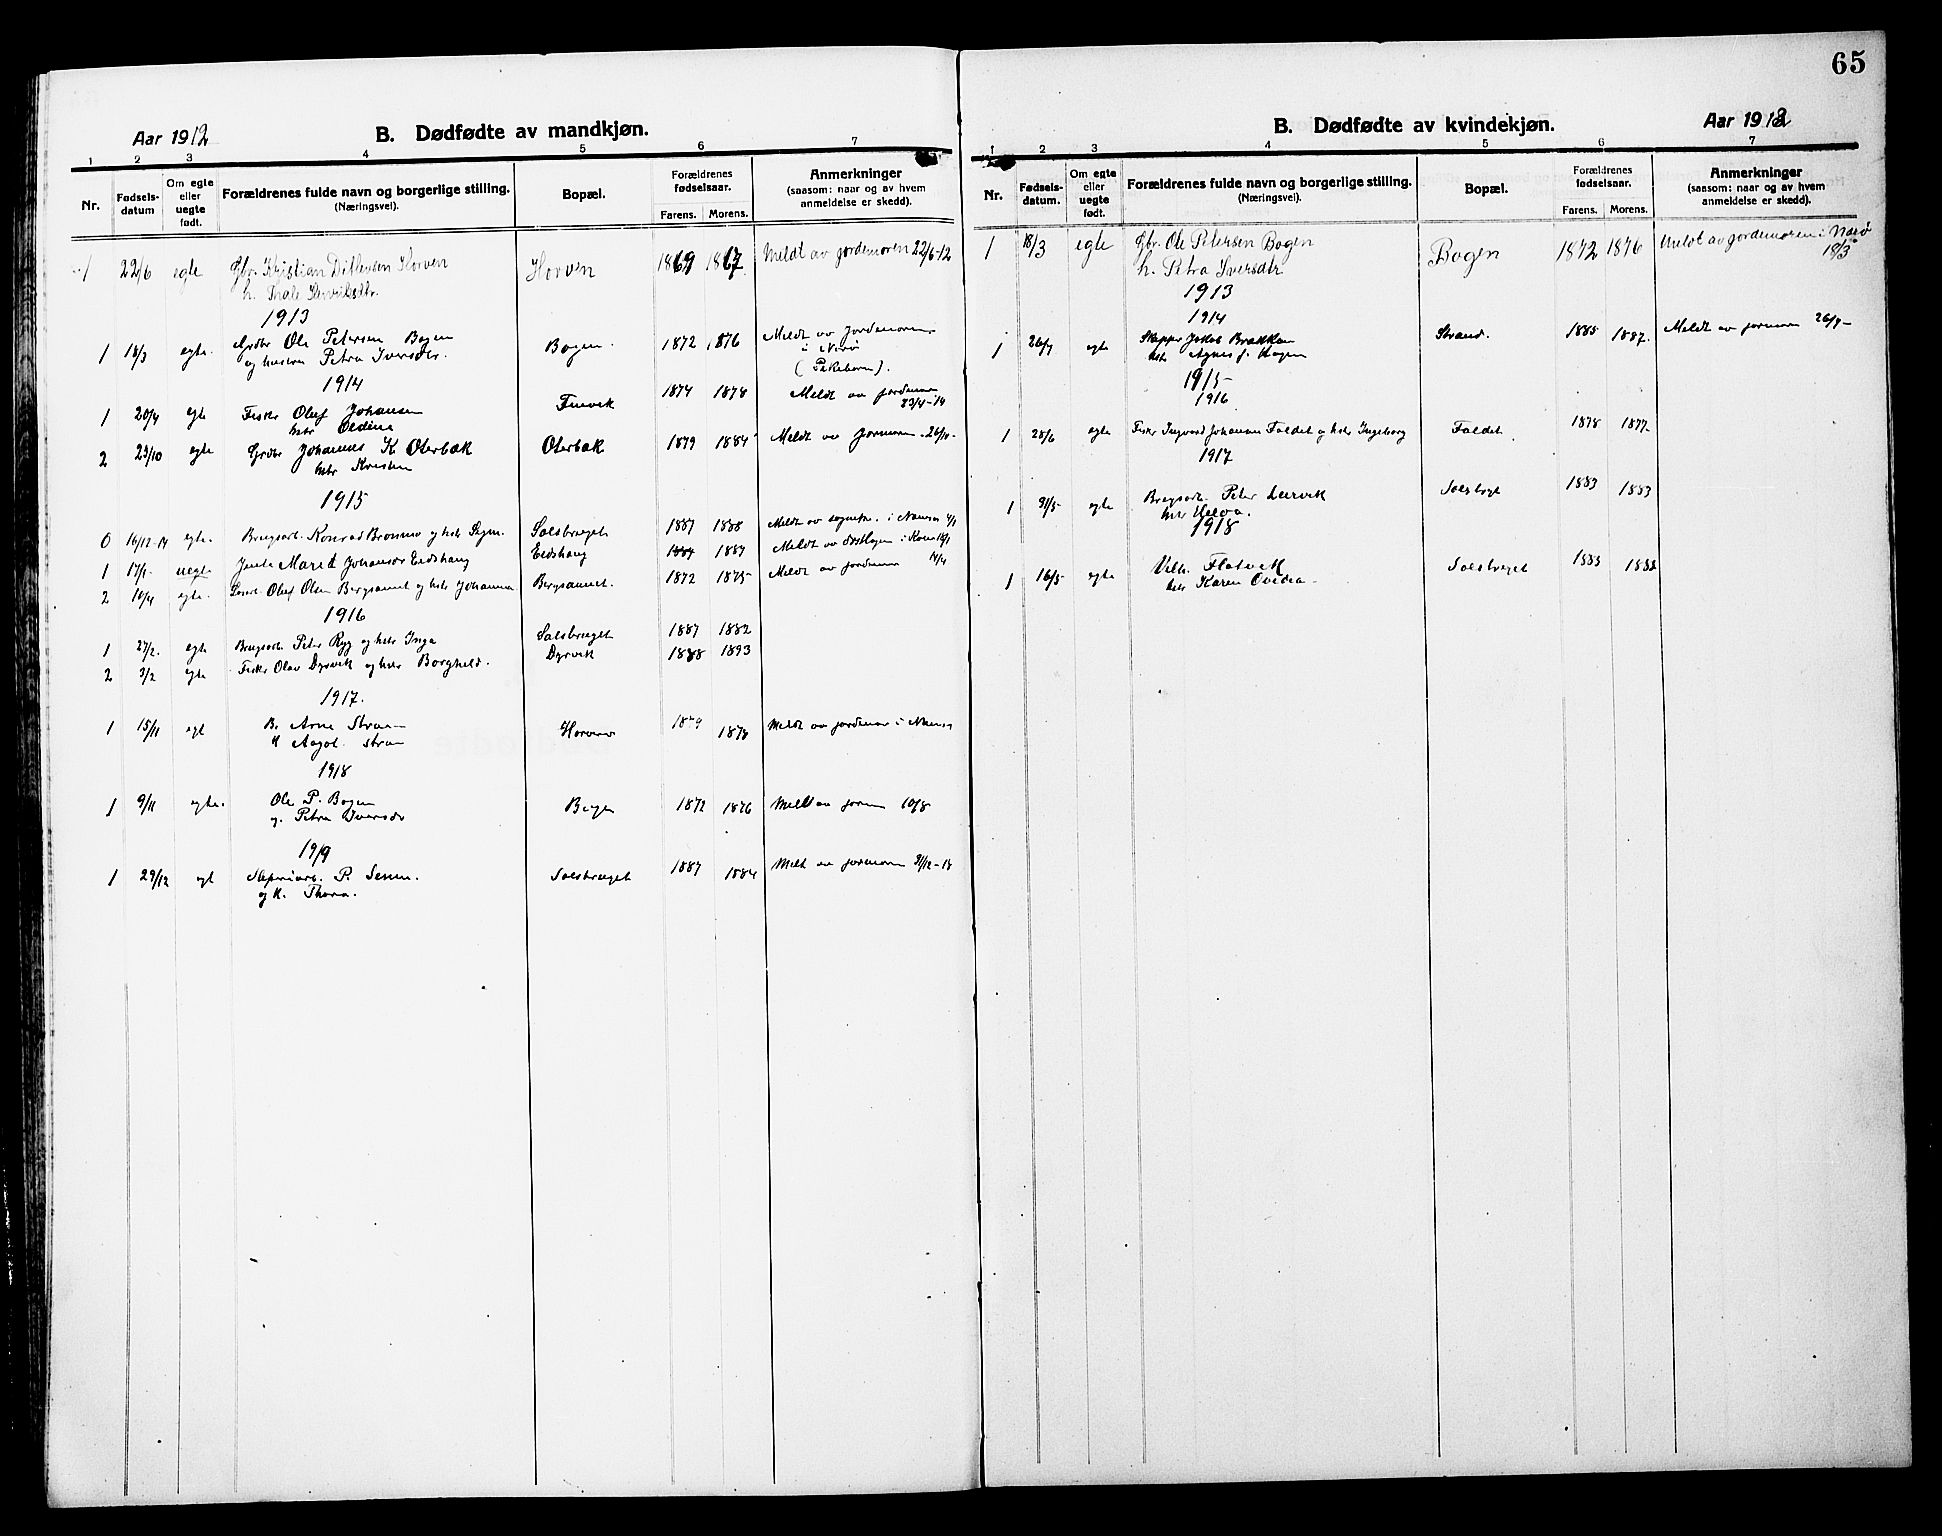 65
Aar 1912
B. Dødfødte av mandkjøn.
1 2 3 4 5 6 7
Nr.
Fødsels-
datum
Om egte
eller
uegte
født.
Forældrenes fulde navn og borgerlige stilling.
(Næringsvei).
Bopæl.
Forældrenes
fødselsaar.
Farens. Morens.
Anmerkninger
(saasom: naar og av hvem
anmeldelse er skedd).
1 22/6 egte Gbr. Kristian Ditlevsen Horven Horven 1869 1867 Meldt av jordemoren 22/6-12
h. Henriksdtr.
1913
1 18/3 egte. Grdbr Ole Petersen Bogen Bogen. 1872 1876 Meldt av Jordemoren
og hustru Petra Iversdtr. i Nærø
1914
1 20/4 egte Fisker Oluf Johansen Finvik 1874 1878 Meldt av jordemor
hstr Oldina 23/4-14
2 23/10 egte Grdbr Johannes K Oterbæk Oterbæk 1879 1884 Meldt av Jormoren 26/10-
hstr Kristine
1915
0 16/12-14 egte. Brugsarb. Konrad og hstr Salsbruget 1887 1888 Meldt av
1 17/1- uegte Jente Johansdr Eidshaug Eidshaug 1887 Meldt av
2 10/4 egte. Oluf Olsen Bergsaunet og hstr Johanna Bergsaunet. 1872 1875 Meldt av jordemor 14/4
1916
1 27/2. egte Brugsarb. Peter Ryg og hstr Inga Salsbruget 1887 1882
2 3/2 egte Fisker Olav Dyrvik og hstr Borghild. Dyrvik 1888 1893
1917.
1 15/11 egt B. Arne Strøm Horven 1879 1878 Meldt av jordemor i
1918
1 9/11 egte. Ole P. Bogen Bogen 1872 1876 Meldt av jorm 10/8
g. Petra Iversdr
1919
1 29/12 egt P. Salsbruget 1887 1884 Meldt av jormoren 31/12-18
og h. Thora.
B. Dødfødte av kvindekjøn.
Aar 1913
1 2 3 4 5 6 7
Nr.
Fødsels-
datum.
Om egte
eller
uegte
født.
Forældrenes fulde navn og borgerlige stilling.
(Næringsvei).
Bopæl.
Forældrenes
fødselsaar.
Farens. Morens.
Anmerkninger
(saasom: naar og av hvem
anmeldelse er skedd).
1 18/3 egte Gbr. Ole Petersen Bogen Bogen 1872 1876 Meldt av jordemoren i Nærø
h. Petra Iversdtr 18/3
1913
1914
1 26/7 egte Skipper Jakob Brakkan Strand. 1885 1887. Meldt av jormoren 26/7-
hstr Agnes f. Hagen
1915-
1916
1 28/6 egte Fisker Ingvard Johansen Faldet og hstr Ingeborg Faldet. 1878 1877.
1917
1 31/5- egte Brugsarb. Peter Leirvik 1883 1883
hstr Helga.
1918
1 16/5 egte Vilh. Flatvik Salsbruget 1883 1882
hstr Karen Ovidia